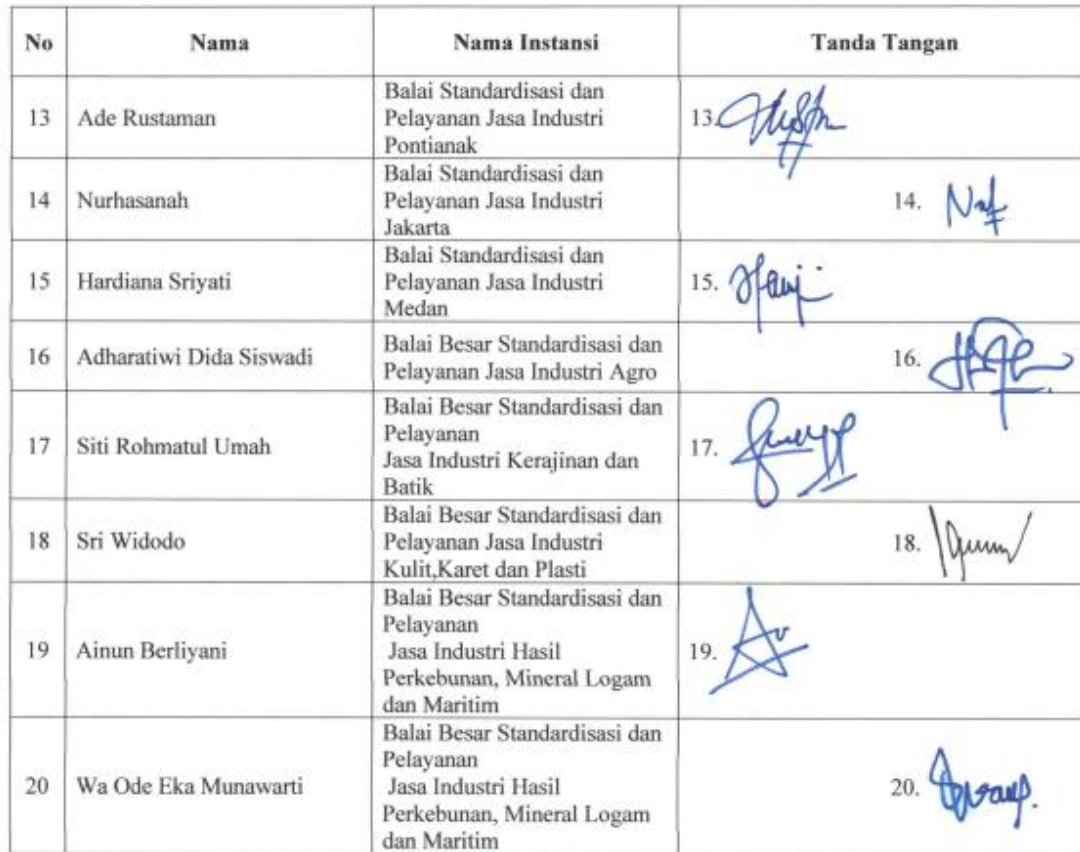 No Nama Nama Instansi Tanda Tangan
13 Ade Rustaman Balai Standardisasi dan
Pelayanan Jasa Industri
Pontianak 13.
14 Nurhasanah Balai Standardisasi dan
Pelayanan Jasa Industri
Jakarta 14.
15 Hardiana Sriyati Balai Standardisasi dan
Pelayanan Jasa Industri
Medan 15.
16 Adharatiwi Dida Siswadi Balai Besar Standardisasi dan
Pelayanan Jasa Industri Agro 16.
17 Siti Rohmatul Umah Balai Besar Standardisasi dan
Pelayanan
Jasa Industri Kerajinan dan
Batik 17.
18 Sri Widodo Balai Besar Standardisasi dan
Pelayanan Jasa Industri
Kulit,Karet dan Plasti 18.
19 Ainun Berliyani Balai Besar Standardisasi dan
Pelayanan
Jasa Industri Hasil
Perkebunan, Mineral Logam
dan Maritim 19.
20 Wa Ode Eka Munawarti Balai Besar Standardisasi dan
Pelayanan
Jasa Industri Hasil
Perkebunan, Mineral Logam
dan Maritim 20.